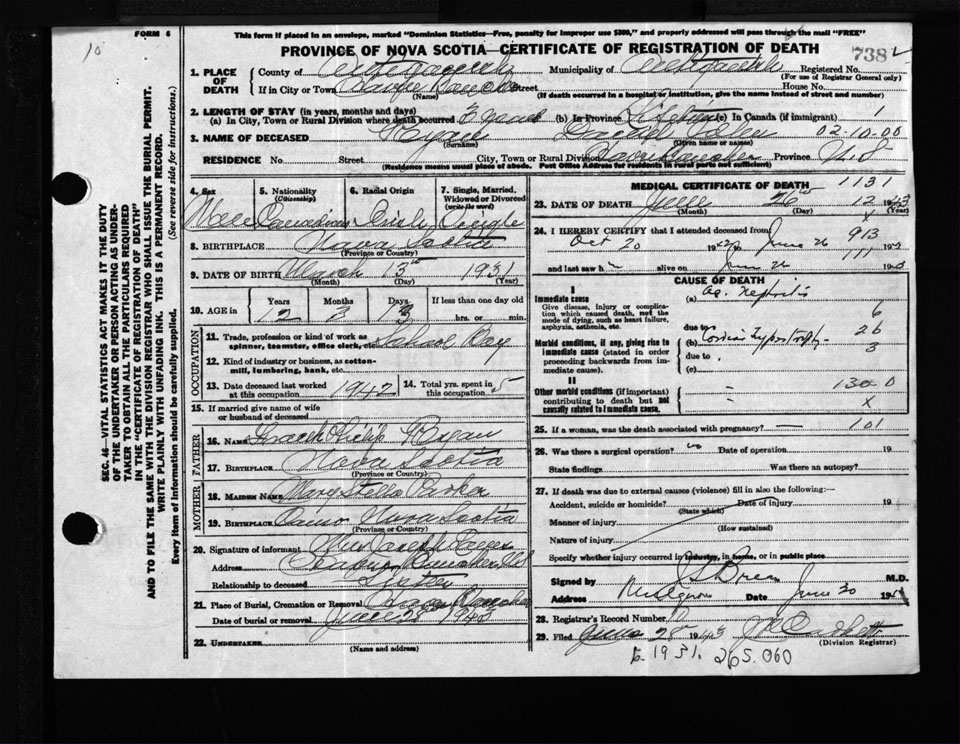 10
FORM 6
This form if placed in an envelope, marked "Dominion Statistics—Free, penalty for improper use $300," and properly addressed will pass through the mail "FREE"
PROVINCE OF NOVA SCOTIA—CERTIFICATE OF REGISTRATION OF DEATH
738
1. PLACE OF DEATH
County of Antigonish Municipality of Antigonish Registered No.
(For use of Registrar General only)
If in City or Town Street House No.
(Name) (If death occurred in a hospital or institution, give the name instead of street and number)
2. LENGTH OF STAY (in years, months and days)
(a) In City, Town or Rural Division where death occurred 3 years (b) In Province Lifetime (c) In Canada (if immigrant) 1
3. NAME OF DECEASED 02-10-00
(Surname) (Given name or names)
RESIDENCE No. Street City, Town or Rural Division Province N.S
(Residence means usual place of abode. Post Office Address for residents in rural parts not sufficient)
4. Sex Male
5. Nationality (Citizenship) Canadian
6. Racial Origin Irish
7. Single, Married, Widowed or Divorced (write the word) Single
8. BIRTHPLACE Nova Scotia
(Province or Country)
9. DATE OF BIRTH March 13th 1931
(Month) (Day) (Year)
10. AGE in
Years Months Days If less than one day old
12 3 13 hrs. or min.
OCCUPATION
11. Trade, profession or kind of work as spinner, teamster, office clerk, etc. School Boy
12. Kind of industry or business, as cotton-mill, lumbering, bank, etc.
13. Date deceased last worked at this occupation 1942
14. Total yrs. spent in this occupation 5
15. If married give name of wife or husband of deceased
FATHER
16. Name Philip
17. Birthplace Nova Scotia
(Province or Country)
MOTHER
18. Maiden Name Mary Stella
19. Birthplace Canso Nova Scotia
(Province or Country)
20. Signature of informant Mrs Joseph
Address
Relationship to deceased Sister
21. Place of Burial, Cremation or Removal
Date of burial or removal June 28 1943
22. Undertaker
(Name and address)
MEDICAL CERTIFICATE OF DEATH 1131
23. DATE OF DEATH June 26th 1943
(Month) (Day) (Year)
12
x
24. I HEREBY CERTIFY that I attended deceased from
Oct 20 19 to June 26 19
913
and last saw h alive on June 26 19
111
CAUSE OF DEATH
I
Immediate cause (a) ac. Nephritis
Give disease, injury or complication which caused death, not the mode of dying, such as heart failure, asphyxia, asthenia, etc.
6
due to
26
Morbid conditions, if any, giving rise to immediate cause (stated in order proceeding backwards from immediate cause).
(b)
3
due to
(c)
II
Other morbid conditions (if important) contributing to death but not causally related to immediate cause.
130-0
x
25. If a woman, was the death associated with pregnancy? —
101
26. Was there a surgical operation? no Date of operation 19
State findings Was there an autopsy?
27. If death was due to external causes (violence) fill in also the following:—
Accident, suicide or homicide? Date of injury 19
(State which)
Manner of injury
(How sustained)
Nature of injury
Specify whether injury occurred in industry, in home, or in public place
Signed by M.D.
Address Date June 30 19
28. Registrar's Record Number 10
29. Filed June 28 1943
(Division Registrar)
b. 1931. 265.060
SEC. 46—VITAL STATISTICS ACT MAKES IT THE DUTY
OF THE UNDERTAKER OR PERSON ACTING AS UNDER-
TAKER TO OBTAIN ALL THE PARTICULARS REQUIRED
IN THE "CERTIFICATE OF REGISTRATION OF DEATH"
AND TO FILE THE SAME WITH THE DIVISION REGISTRAR WHO SHALL ISSUE THE BURIAL PERMIT.
WRITE PLAINLY WITH UNFADING INK. THIS IS A PERMANENT RECORD.
Every item of information should be carefully supplied. (See reverse side for instructions.)